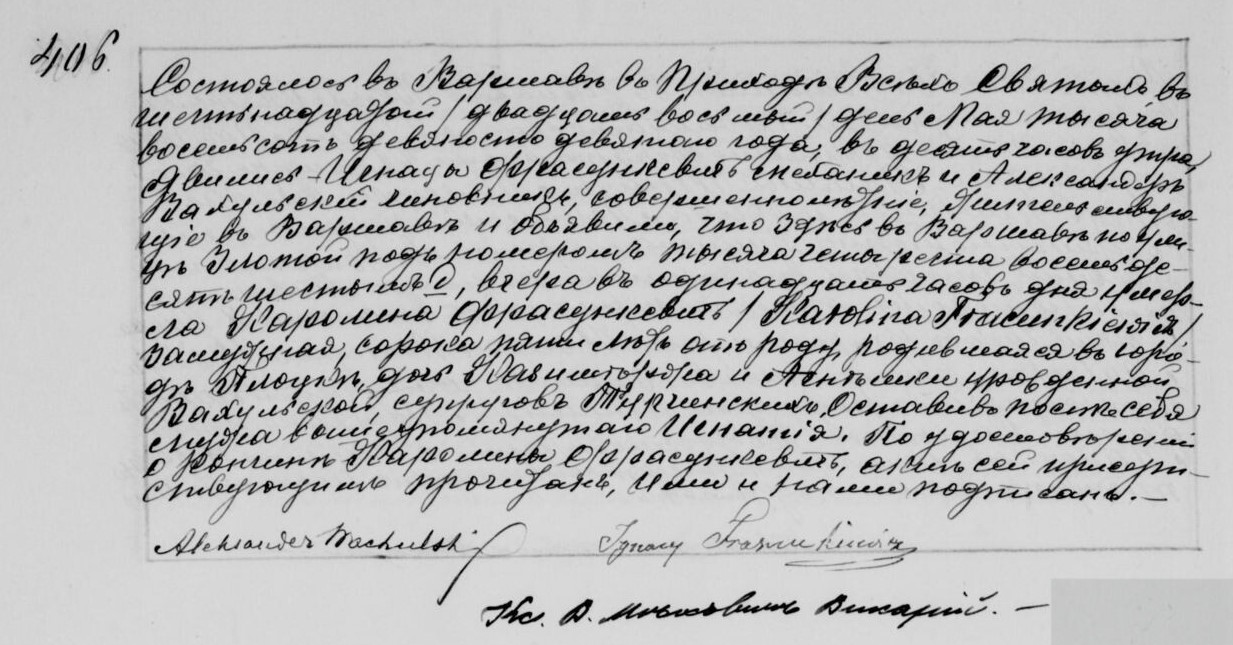 406.
Состоялось въ Варшавѣ въ Приходѣ Всѣхъ Святыхъ въ
шестнадцатый / двадцать восьмый / день Мая тысяча
восемьсотъ девяносто девятаго года, въ десять часовъ утра,
Явились Игнацы Фрасункевичъ механикъ и Александръ
Вахульскій чиновникъ, совершеннолѣтніе, жительствую-
щіе въ Варшавѣ и объявили, что здѣсь въ Варшавѣ по ули-
цѣ Злотой подъ номеромъ тысяча четыреста восемьде-
сятъ шестымъ D, вчера въ одинадцать часовъ дня умер-
ла Каролина Фрасункевичъ / Karolina Frasunkiewicz /
замужная, сорока пяти лѣтъ отъ роду, родившаяся въ горо-
дѣ Плоцкѣ, дочь Казиміра и урожденной
Вахульской, супруговъ Турчинскихъ. Оставивъ послѣ себя
мужа вышеупомянутаго Игнатія. По удостовѣреніи
о кончинѣ Каролины Фрасункевичъ, актъ сей присут-
ствующимъ прочитанъ, ими и нами подписанъ. —
Aleksander Wachulski
Ignacy Frasunkiewicz
Кс. В. Викарій. —